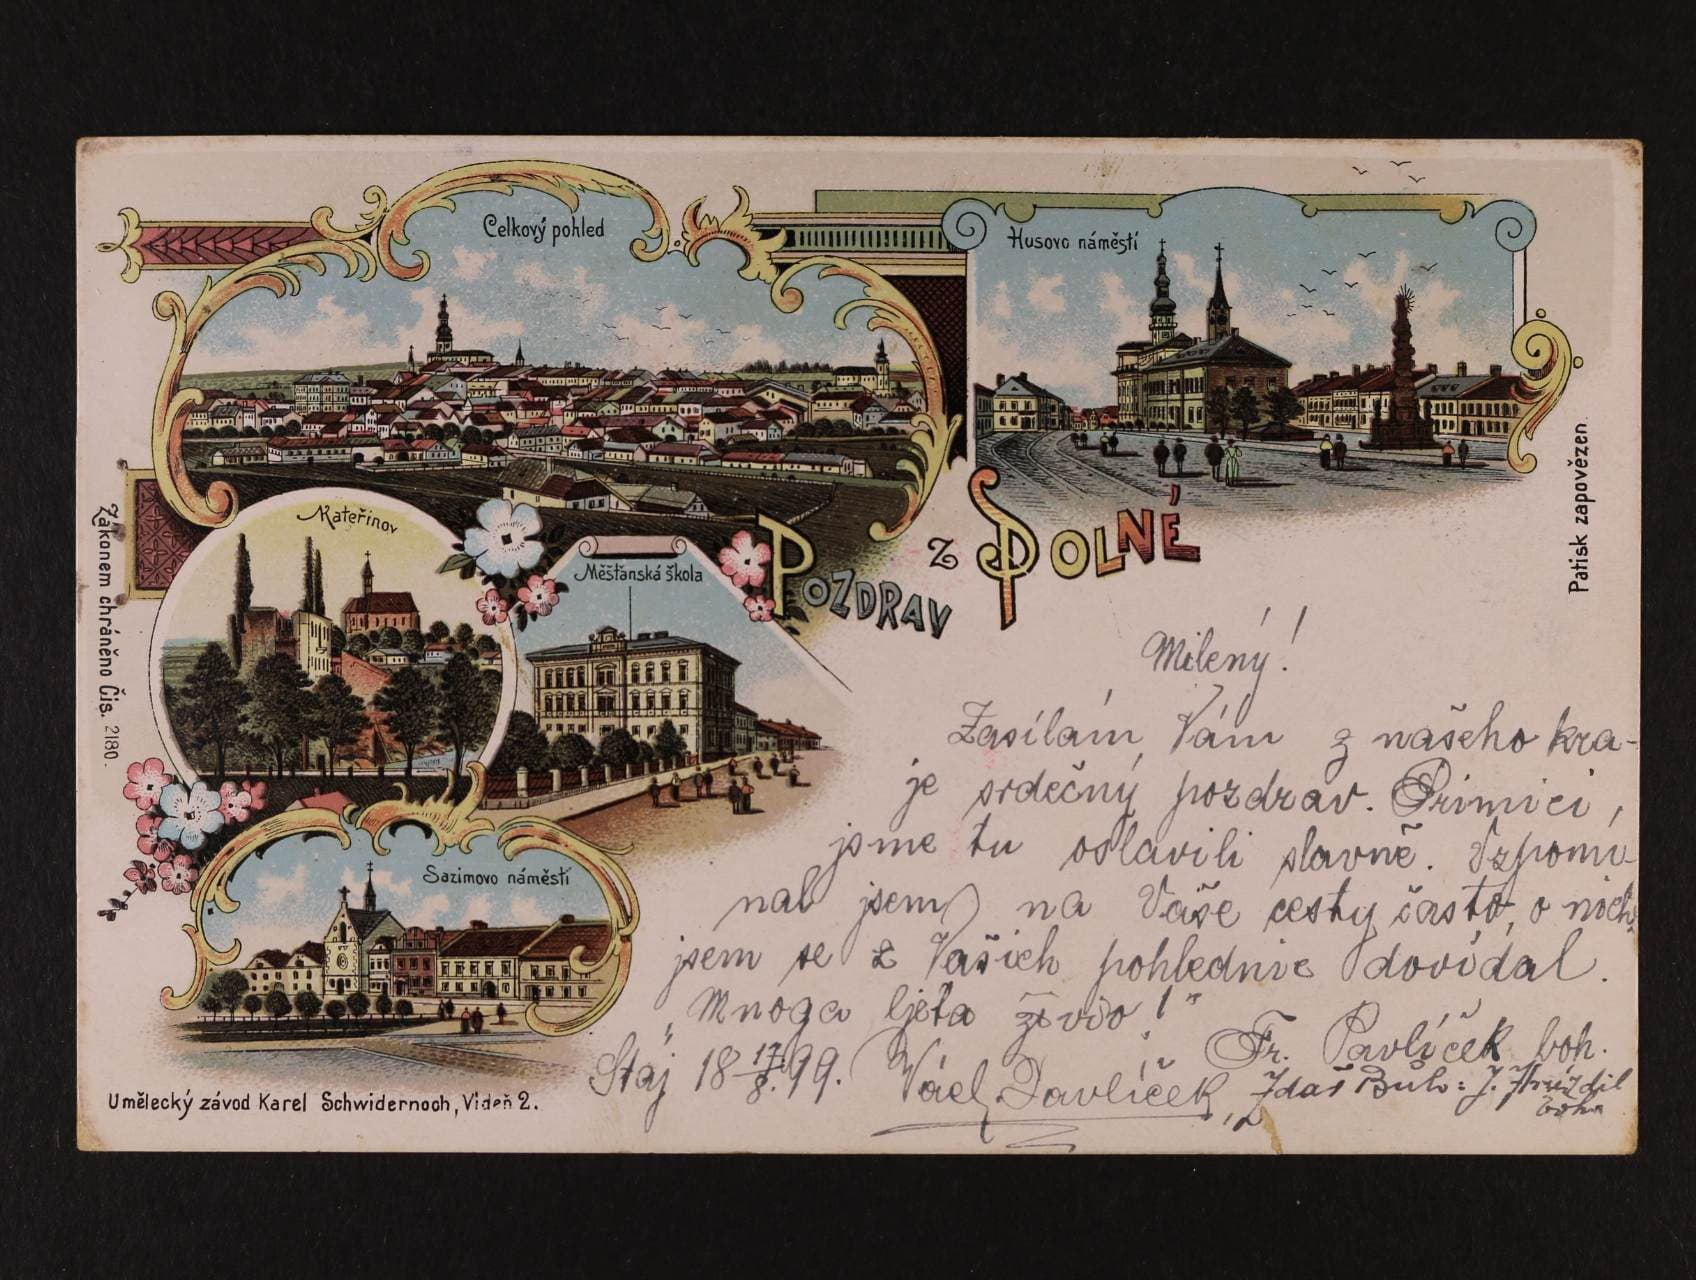 Celkový pohled
Husovo náměstí
Kateřinov
Měšťanská škola
Sazimovo náměstí
POZDRAV z POLNÉ
Zákonem chráněno Čís. 2180.
Patisk zapovězen.
Umělecký závod Karel Schwidernoch, Videň 2.
Milený!
Zasílám Vám z našeho kra-
je srdečný pozdrav. Primici,
jsme tu oslavili slavně. Vzpomí
nal jsem na Vaše cesty často, o nich
jsem se z Vašich pohlednic dovídal.
"Mnoga ljeta živio!"
Fr. Pavlíček boh.
Staj 18 17/8. 99. Václ. Pavlíček